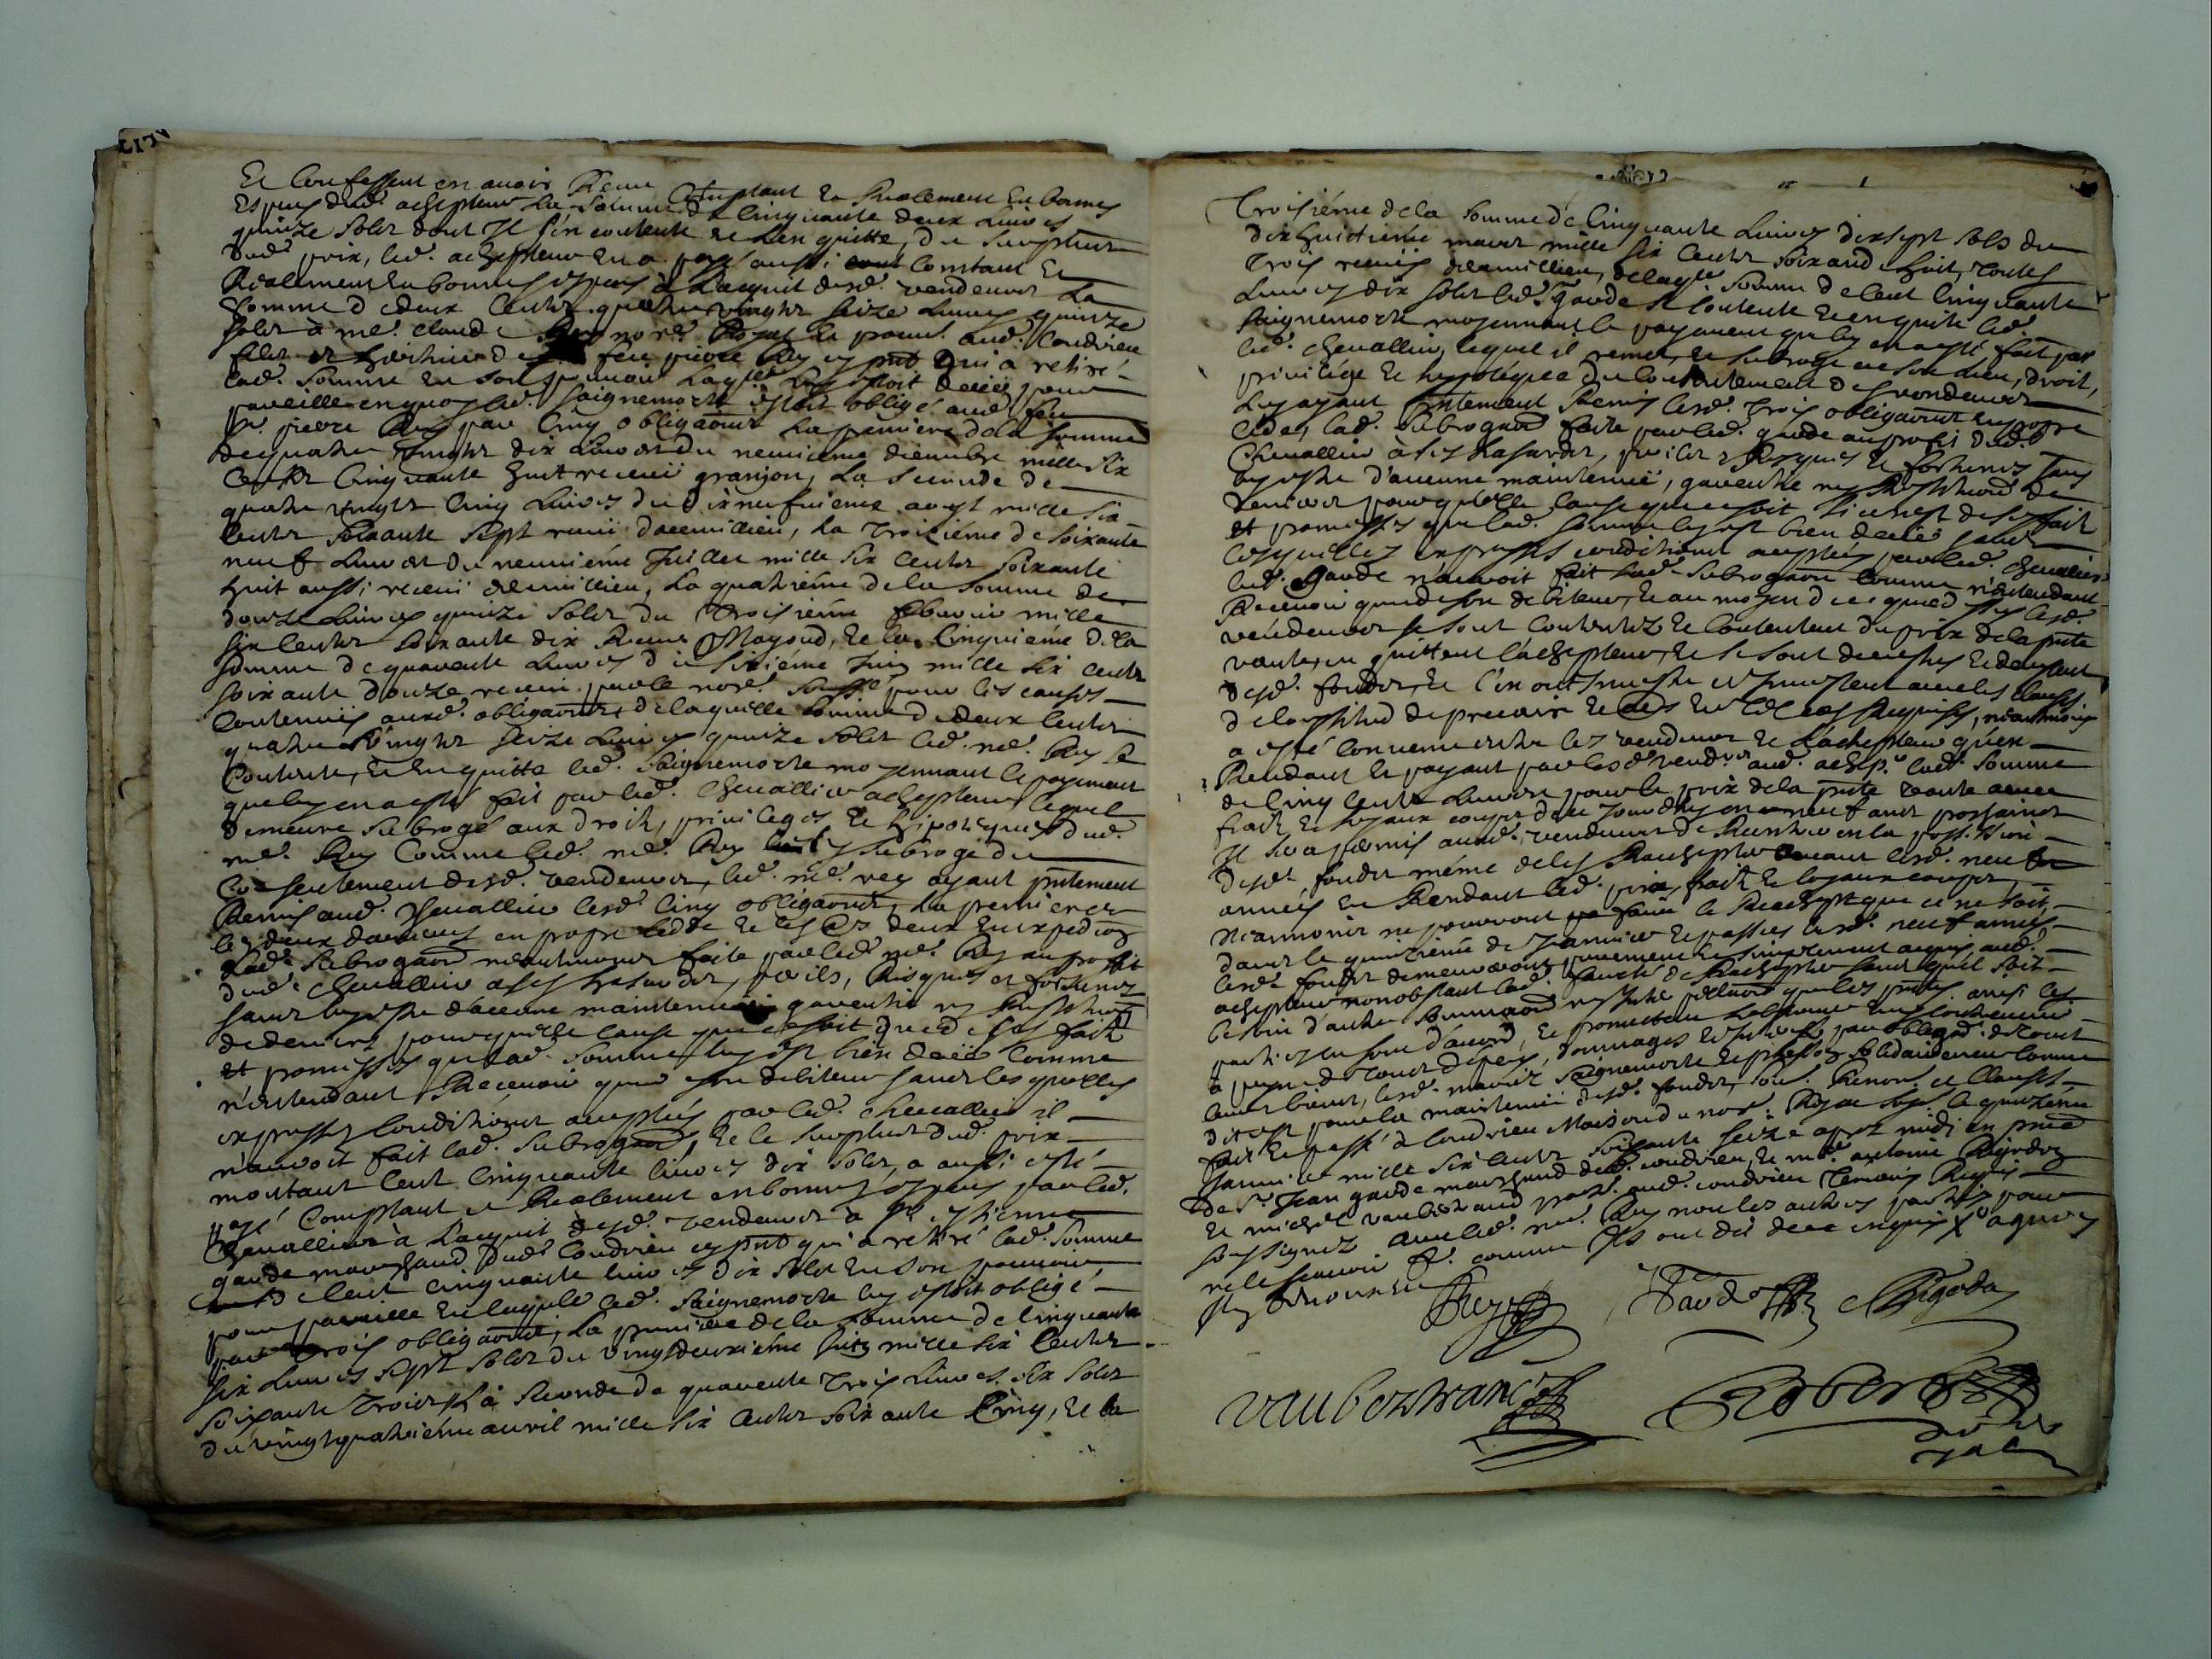 Et Confessent en avoir Receu Comptant Et Realement En bonnes
Especes dud. achepteur La Somme de Cinquante deux Livres
quinze Solz dont Il s'en contente et L'en quitte, du Surplus
dud. prix, led. achepteur En a payé aussi Comtant Et
Realement En bonnes especes à L'acquit desd. vendeurs La
Somme de deux Centz quatre vingtz Seize Livres quinze
Solz à me. Claude Rey nore. Royal aud. Condrieu
filz et heritier de feu pierre Rey cy pnt qui a retiré
lad. Somme En son pouvoir Laqlle Luy estoit deüe pour
pareille enquoy led. Saignemorte estoit obligé aud. feu
Sr. pierre Rey par Cinq obligaons La premiere de la Somme
de quatre vingtz dix Livres du neuvieme decembre mille Six
Centz Cinquante huit receüe granjon, La Seconde de
quatre vingtz Cinq Livres du dixneufvieme aoust mille Six
Centz Soixante Sept receüe daremillieu, La Troizieme de Soixante
neuf Livres du neuvieme Juillet mille Six Centz Soixante
huit aussi receüe daremillieu, La quatrieme de la Somme de
douze Livres quinze Solz du Troisieme febvrier mille
Six Centz Soixante dix Receüe Mayoud, Et la Cinquieme de la
Somme de quarante Livres du Sixiéme Juin mille Six Centz
Soixante douze receüe par le nore. Soussé. pour les causes
Contenües auxd. obligaons, de laquelle Somme de deux Centz
quatre Vingtz Seize Livres quinze Solz led. me. Rey Se
Contente, Et En quitte led. Saignemorte moyennant le payement
que luy en a esté fait par led. Chevallier achepteur Lequel
demeure Subrogé aux droitz, privileges Et hipoteques dud.
me. Rey Comme led. me. Rey Subroge du
Consentement desd. vendeurs, led. me. rey ayant pntement
Remis aud. Chevallier lesd. Cinq obligaons, La premiere et
les deux dernieres en propre cedde Et les deux En expedions
Lad. Subrogaon neantmoins faite par led. me. Rey au profit
dud. Chevallier a ses hasardz, perils, Risques et fortunes
Sans luy estre d'aucune maintenüe garentie ny Restitution
de deniers pour quelle cause que ce soit que de Ses faitz
et promesses que lad. Somme luy est bien deüe Comme
n'entendant Recevoir que d'son debiteur Sans lesquelles
expresses Conditions acceptées par led. Chevallier il
n'auroit fait lad. Subrogaon, Et le Surplus dud. prix
montant Cent Cinquante livres dix Solz, a aussi esté
payé Comptant Et Realement en bonnes especes par led.
Chevallier à L'acquit desd. vendeurs à Sr. Jean
gaude marchand dud. Condrieu cy pnt qui a retiré lad. Somme
de Cent Cinquante livres dix Solz En Son pouvoir
pour pareille En laquelle led. Saignemorte luy estoit obligé
par trois obligaons, La premiere de la Somme de Cinquante
Six Livres Sept Solz du vingtdeuxiéme Juin mille Six Centz
Soixante Trois, La Seconde de quarante Trois Livres Six Solz
du vingtquatriéme avril mille Six Centz Soixante Cinq, Et la
Troisiéme de la Somme de Cinquante Livres dix sept Solz du
dix huictiéme mars mille Six Centz Soixante huit, Toutes
Trois receües daremillieu, de laqlle Somme de Cent Cinquante
Livres dix Solz led. Sr. gaude Se Contente Et en quite led.
Saignemorte moyennant le payement que luy en a esté fait par
led. Chevallier, lequel il remet, Et Subroge en Son Lieu, droit,
privilége Et hypoteque du Consentement desd. vendeurs
Luy ayant pntement Remis lesd. Trois obligaons en propre
cede, lad. Subrogaon faite par led. gaude au profit dud.
Chevallier à Ses hasardz, perilz, Risques Et fortunes Sans
luy estre d'aucune maintenüe, garentie ny Restitution de
deniers pour quelle cause que ce soit Si ce n'est de Ses faitz
et promesses que lad. Somme luy est bien deüe Sans
lesquelles expresses conditions acceptées par led. Chevallier
led. Gaude n'auroit fait lad. Subrogaon comme n'entendant
Recevoir que de son debiteur, Et au moyen de ce que dessus lesd.
vendeurs Se Sont Contentez Et Contentent du prix de la pnte
vante, en quittent L'achepteur, Et Se Sont devestus Et devestent
desd. fondz, Et L'en ont investu et investent avec les clauses
de constitut de precaire Et En tel cas Requises, neantmoins
a esté Convenu entre les vendeurs Et L'achepteur qu'en
Rendant Et payant par lesd. vendrs aud. achepr. lad. Somme
de Cinq Centz Livres pour le prix de la pnte vante avec
fraitz Et loyaux coups dans Jourdhuy en neuf ans prochains
Il Sera permis ausd. vendeurs de Rentrer en la possession
desd. fondz même de les Rachepter avant lesd. neuf
années En Rendant led. prix, fraitz Et loyaux coups,
Neanmoins ne pourront faire le Rachept que ce ne soit
dans le quinziéme de Janvier Et passées lesd. neuf années
lesd. fondz demeureront purement Et Simplement acquis aud.
achepteur nonobstant lad. faculté de Rachepter Sans qu'il Soit
besoin d'autre Sommaon ny Interpellaon que les pntes. ainsi les
parties en Sont d'acord, Et promettent
a peyne de Tous dépens, dommages Et Interetz par obligaon de Tous
leurs biens, lesd. mariéz Saignemorte Et Solidairement Comme
dit est pour la maintenüe desd. fondz, Soub. Renon. Et Clauses
fait Et passé à Condrieu Maison du nore. Royal Soubé. le quinzieme
Janvier mille Six Centz Soixante Seize aprez midi en pnce
de Sr. Jean gaude marchand dud. Condrieu, Et me. antoine Rigodon
Et michel vaubertrand prat. aud. Condrieu Temoins Requis
Soussignez avec led. me. Rey non les autres parties pour
ne le Sçavoir comme Ils ont dit de ce enquis
Rey
Rigodon
vaubertrand